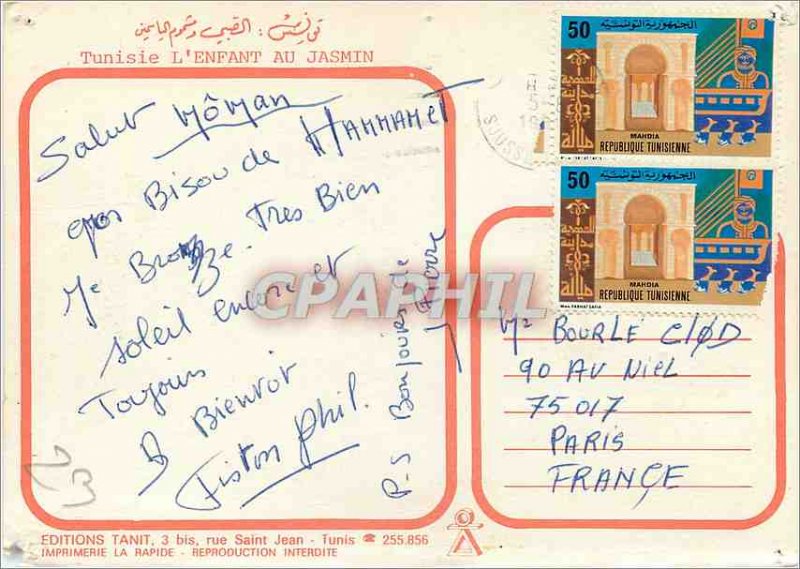 تونس : الصبي ومشموم الياسمين
Tunisie L'ENFANT AU JASMIN
Salut Môman
gros Bisou de HAMMAMET
Je Bronze Tres Bien
soleil encore et
Toujours
a Bientôt
Fiston Phil.
P.S Bonjours de Pierre
CPAPHIL
50
الجمهورية التونسية
MAHDIA
REPUBLIQUE TUNISIENNE
50
الجمهورية التونسية
MAHDIA
REPUBLIQUE TUNISIENNE
SOUSSE
BOURLÉ CLØD
90 AV NIEL
75017
PARIS
FRANCE
EDITIONS TANIT, 3 bis, rue Saint Jean - Tunis ☎ 255.856
IMPRIMERIE LA RAPIDE - REPRODUCTION INTERDITE